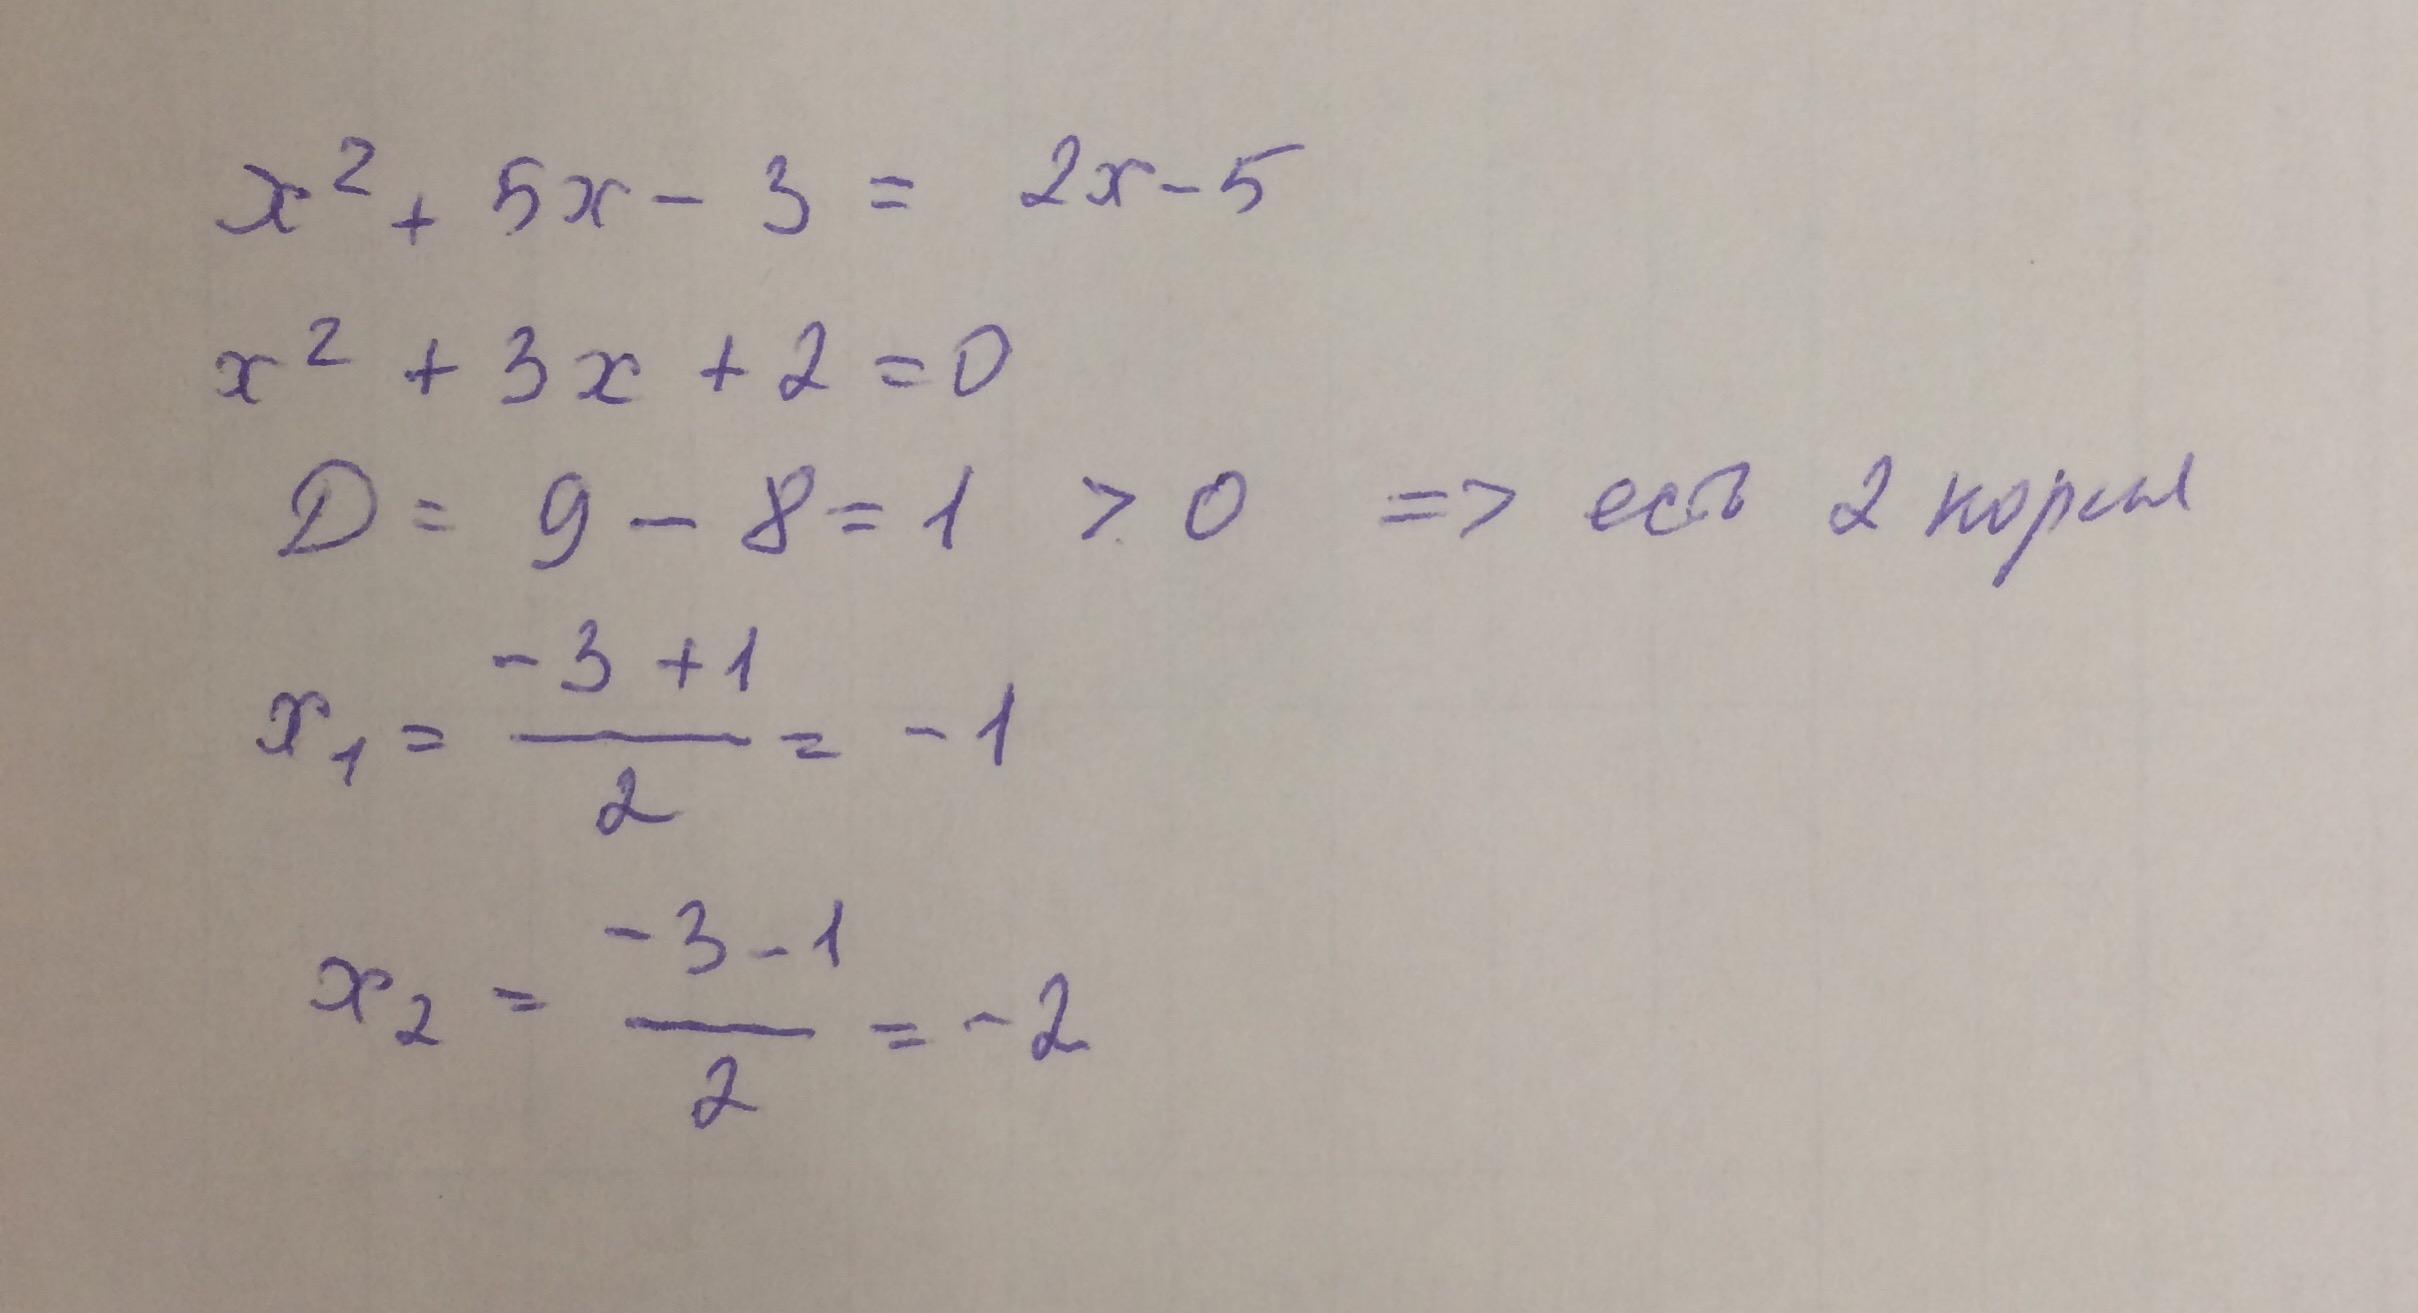 x² + 5x - 3 = 2x - 5
x² + 3x + 2 = 0
D = 9 - 8 = 1 > 0 => есть 2 корня
x₁ = (-3 + 1)/2 = -1
x₂ = (-3 - 1)/2 = -2